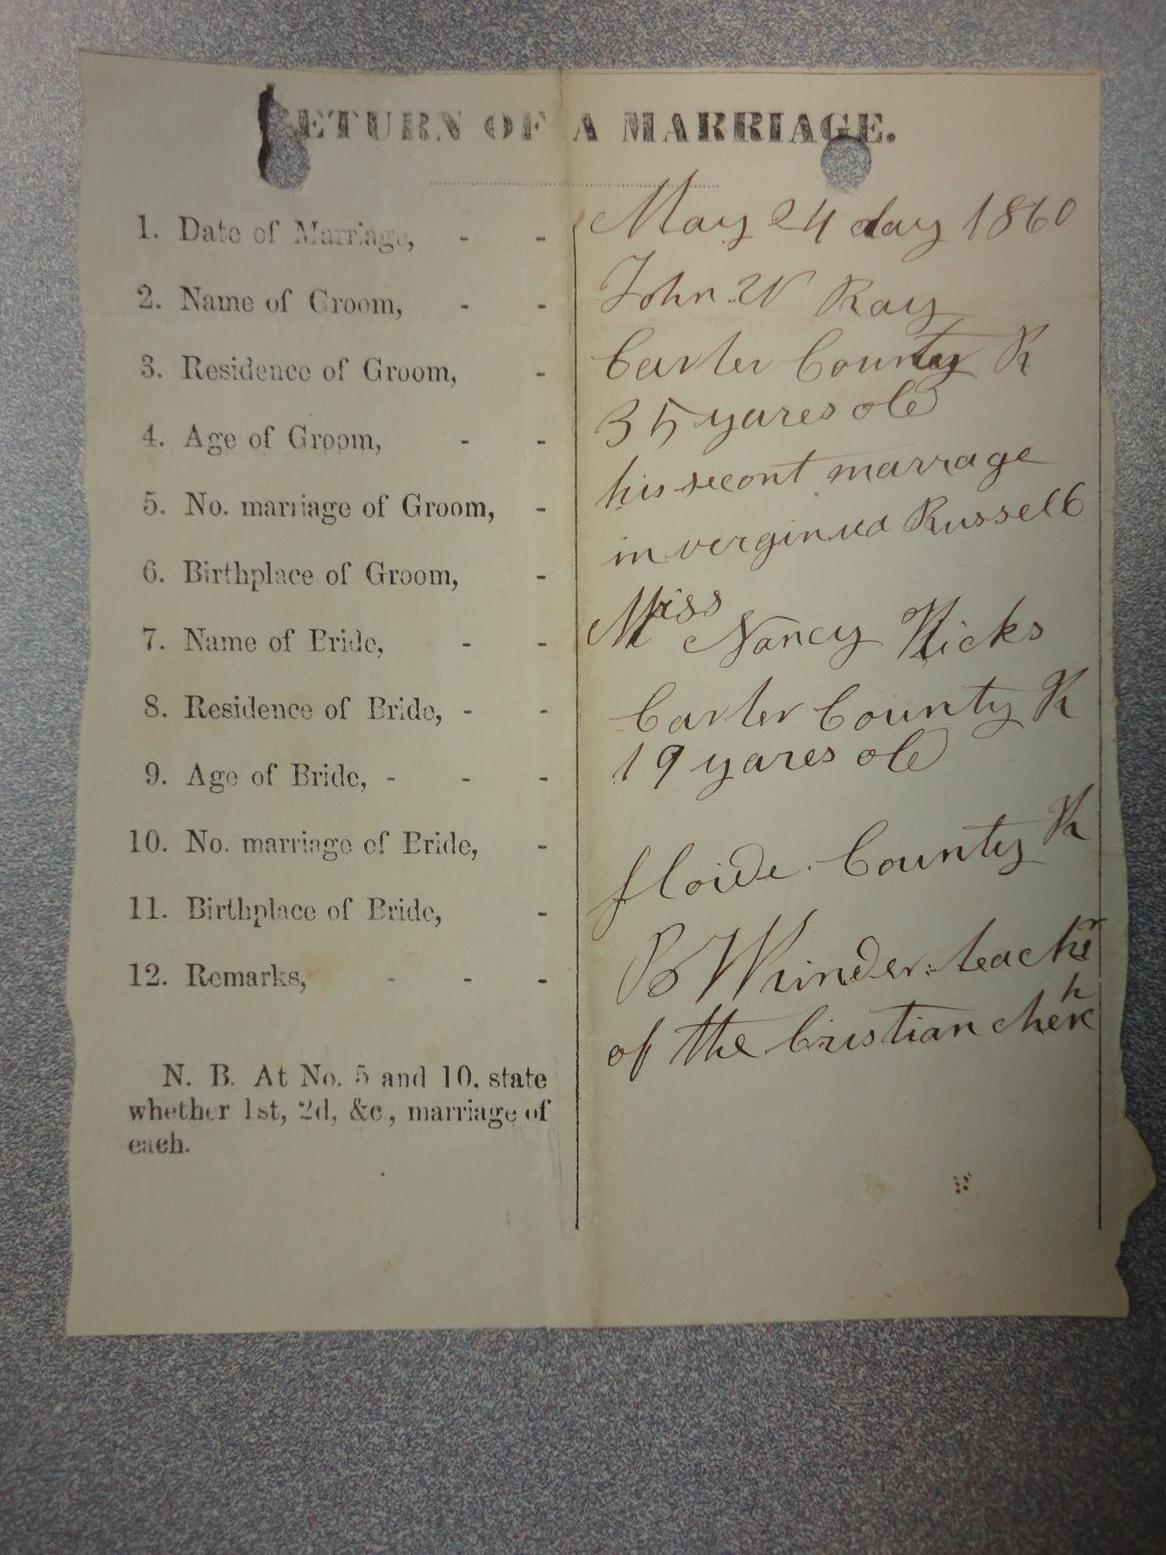 RETURN OF A MARRIAGE.
1. Date of Marriage, - - May 24 day 1860
2. Name of Groom, - - John W Ray
3. Residence of Groom, - Carter County K
4. Age of Groom, - - 35 yares old
5. No. marriage of Groom, - his secont marrage
6. Birthplace of Groom, - in verginua Russell C
7. Name of Bride, - - Miss Nancy Hicks
8. Residence of Bride, - - Carter County K
9. Age of Bride, - - - 19 yares old
10. No. marriage of Bride, -
11. Birthplace of Bride, - floide County K
12. Remarks, - - - B teacher
of the Cristian cherch
N. B. At No. 5 and 10, state
whether 1st, 2d, &c., marriage of
each.